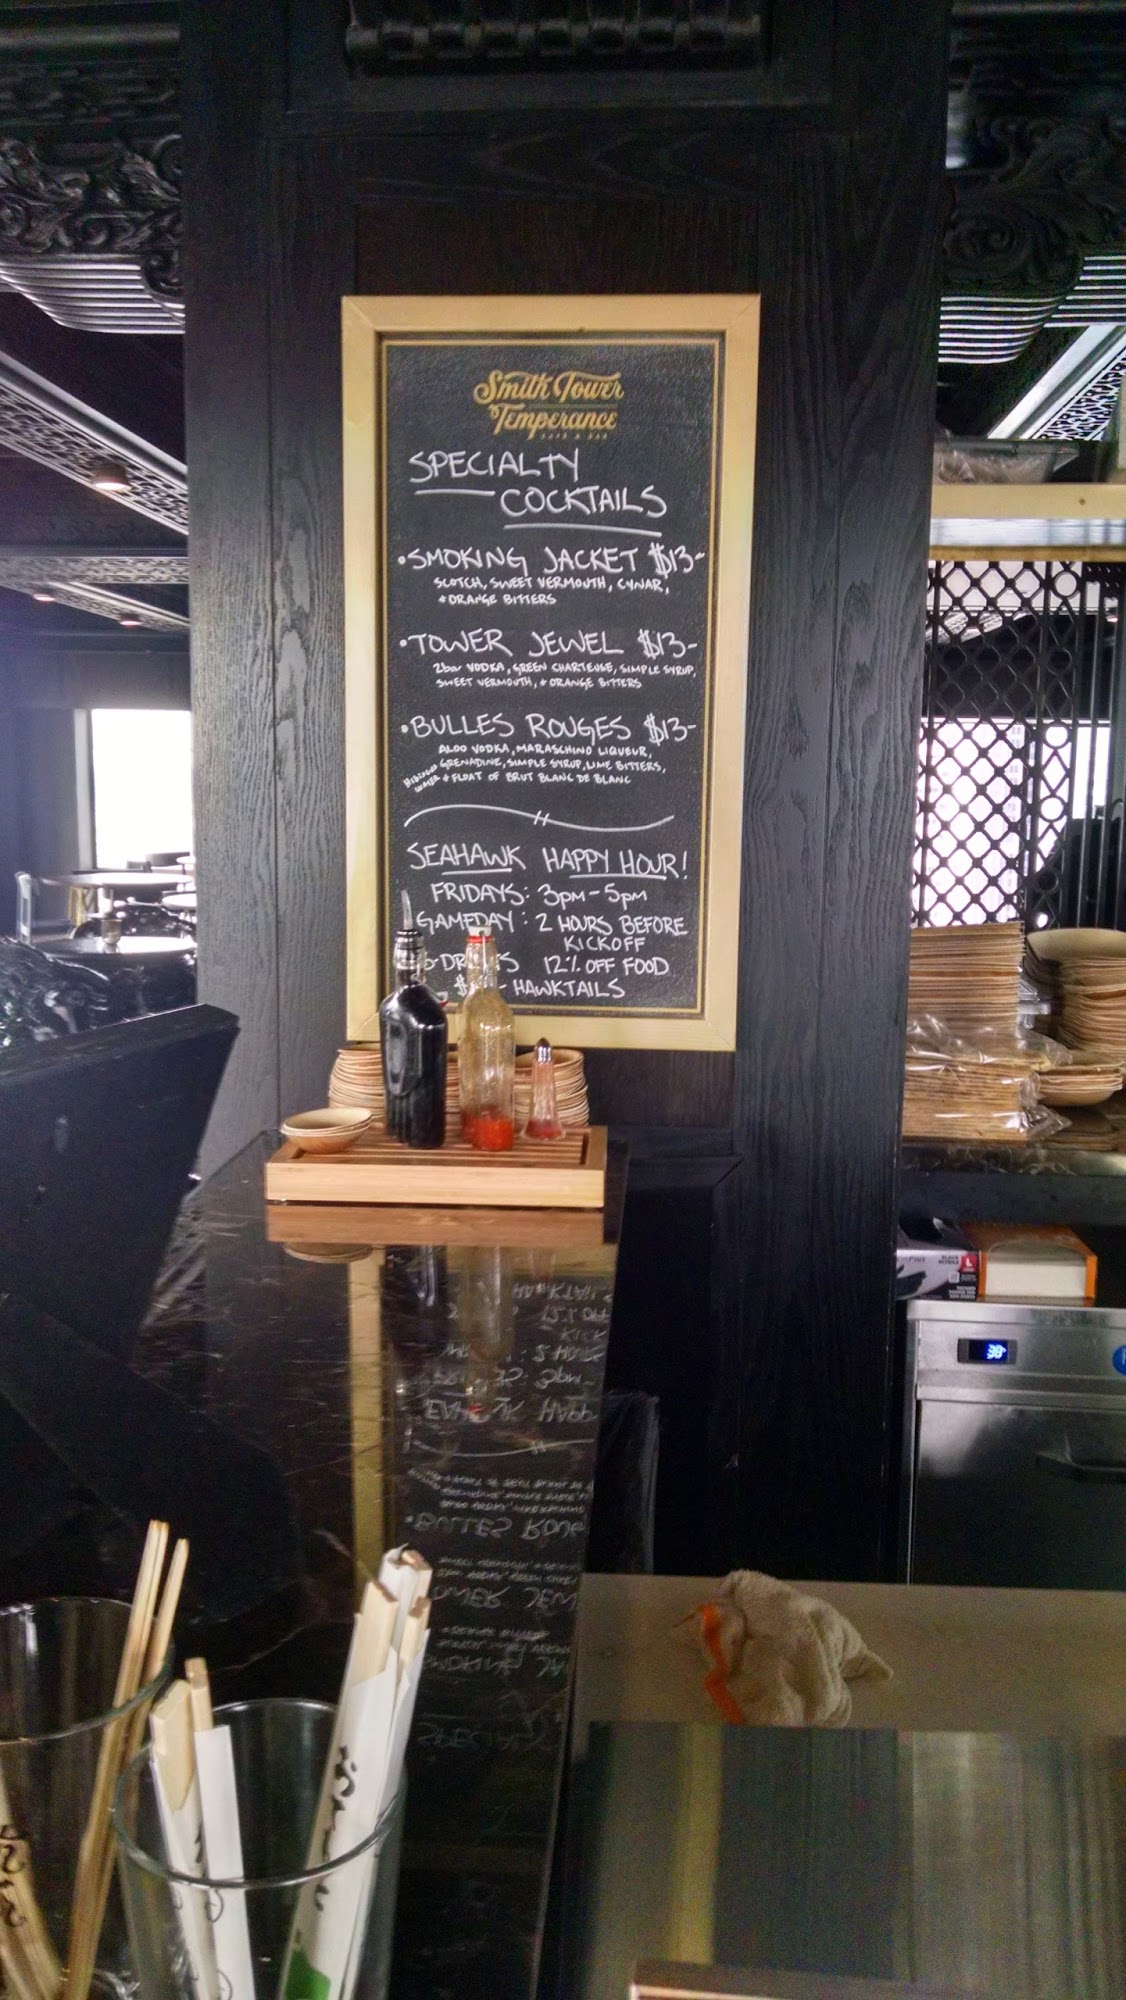 Smith Tower
Temperance
SPECIALTY
COCKTAILS
•SMOKING JACKET $13-
SCOTCH, SWEET VERMOUTH, CYNAR,
+ ORANGE BITTERS
•TOWER JEWEL $13-
2bar VODKA, GREEN CHARTEUSE, SIMPLE SYRUP,
SWEET VERMOUTH, + ORANGE BITTERS
•BULLES ROUGES $13-
ALOO VODKA, MARASCHINO LIQUEUR,
GRENADINE, SIMPLE SYRUP, LIME BITTERS,
+ FLOAT OF BRUT BLANC DE BLANC
SEAHAWK HAPPY HOUR!
FRIDAYS: 3PM-5PM
GAMEDAY: 2 HOURS BEFORE
KICKOFF
12% OFF FOOD
HAWKTAILS
BLACK
L
38°